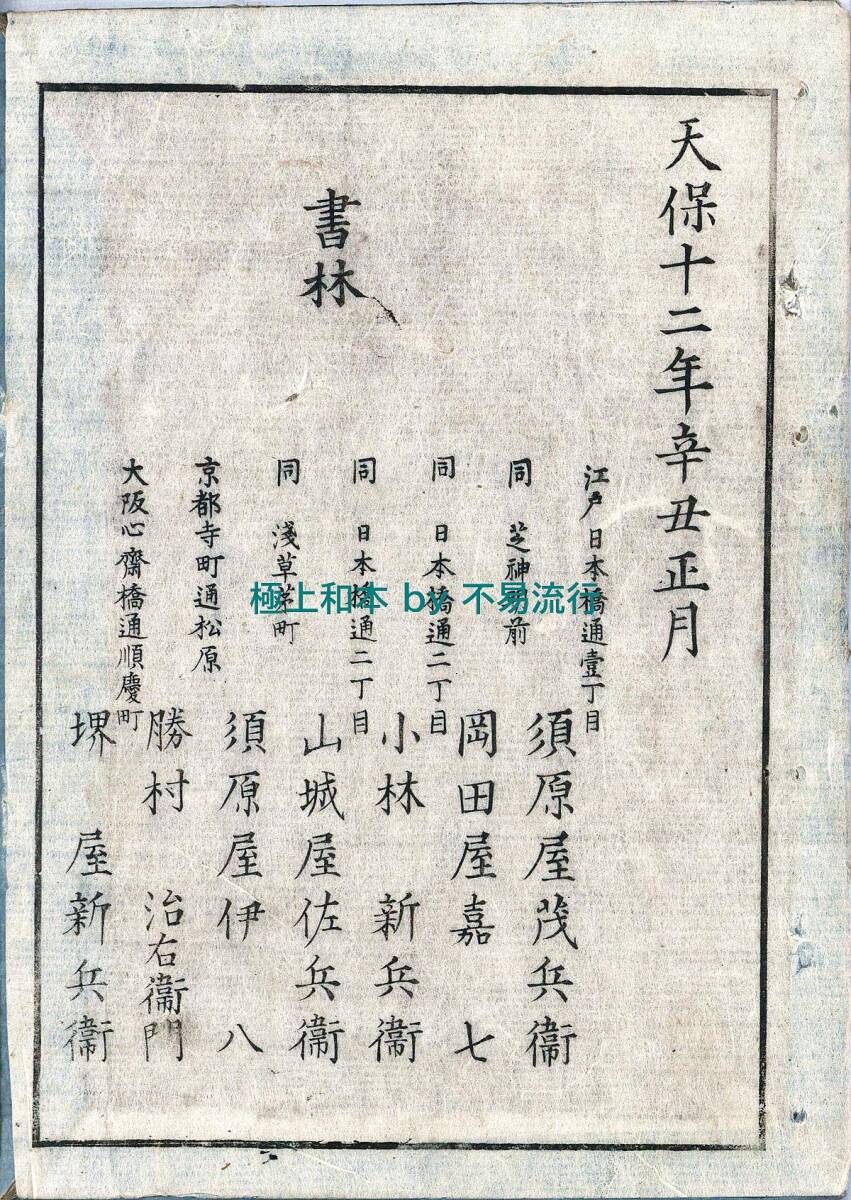 天保十二年辛丑正月
江戸日本橋通壹丁目
須原屋茂兵衞
同 芝神明前
岡田屋嘉七
同 日本橋通二丁目
小林新兵衞
同 日本橋通二丁目
山城屋佐兵衞
同 淺草茅町
須原屋伊八
京都寺町通松原
勝村治右衞門
大阪心齋橋通順慶町
堺屋新兵衞
書林
極上和本 by 不易流行